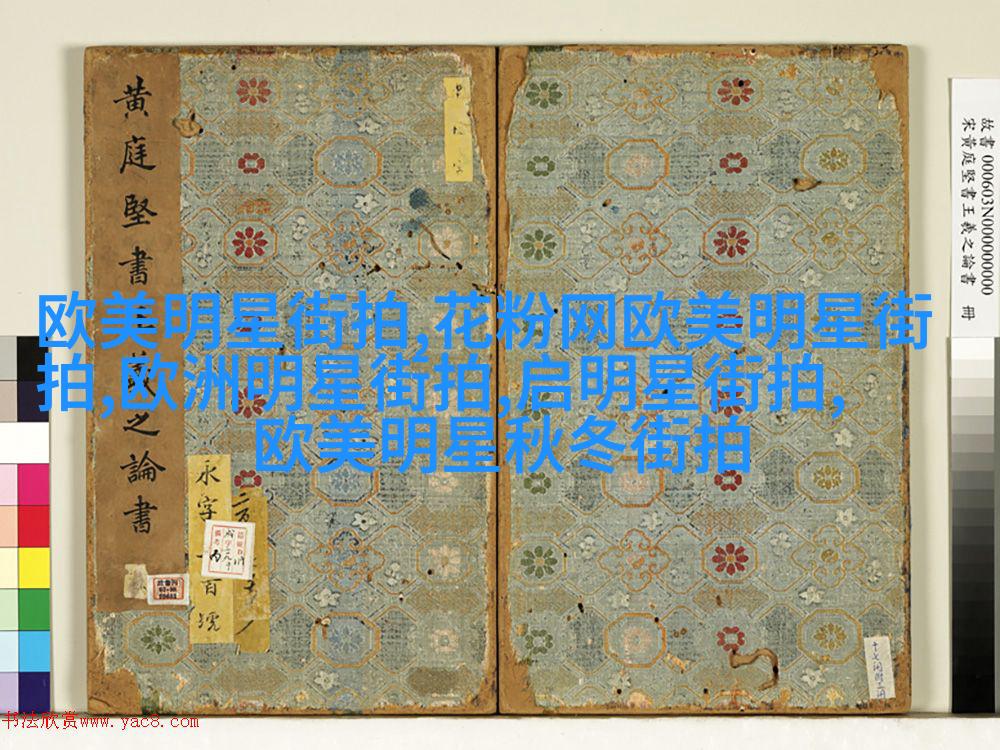 黄庭堅書羲之論書
永字百號
欧美明星街拍,花粉网欧美明星街
拍,欧洲明星街拍,启明星街拍,
欧美明星秋冬街拍
故書 000603N000000000
宋黄庭堅書王羲之論書 冊
书法欣赏www.yac8.com